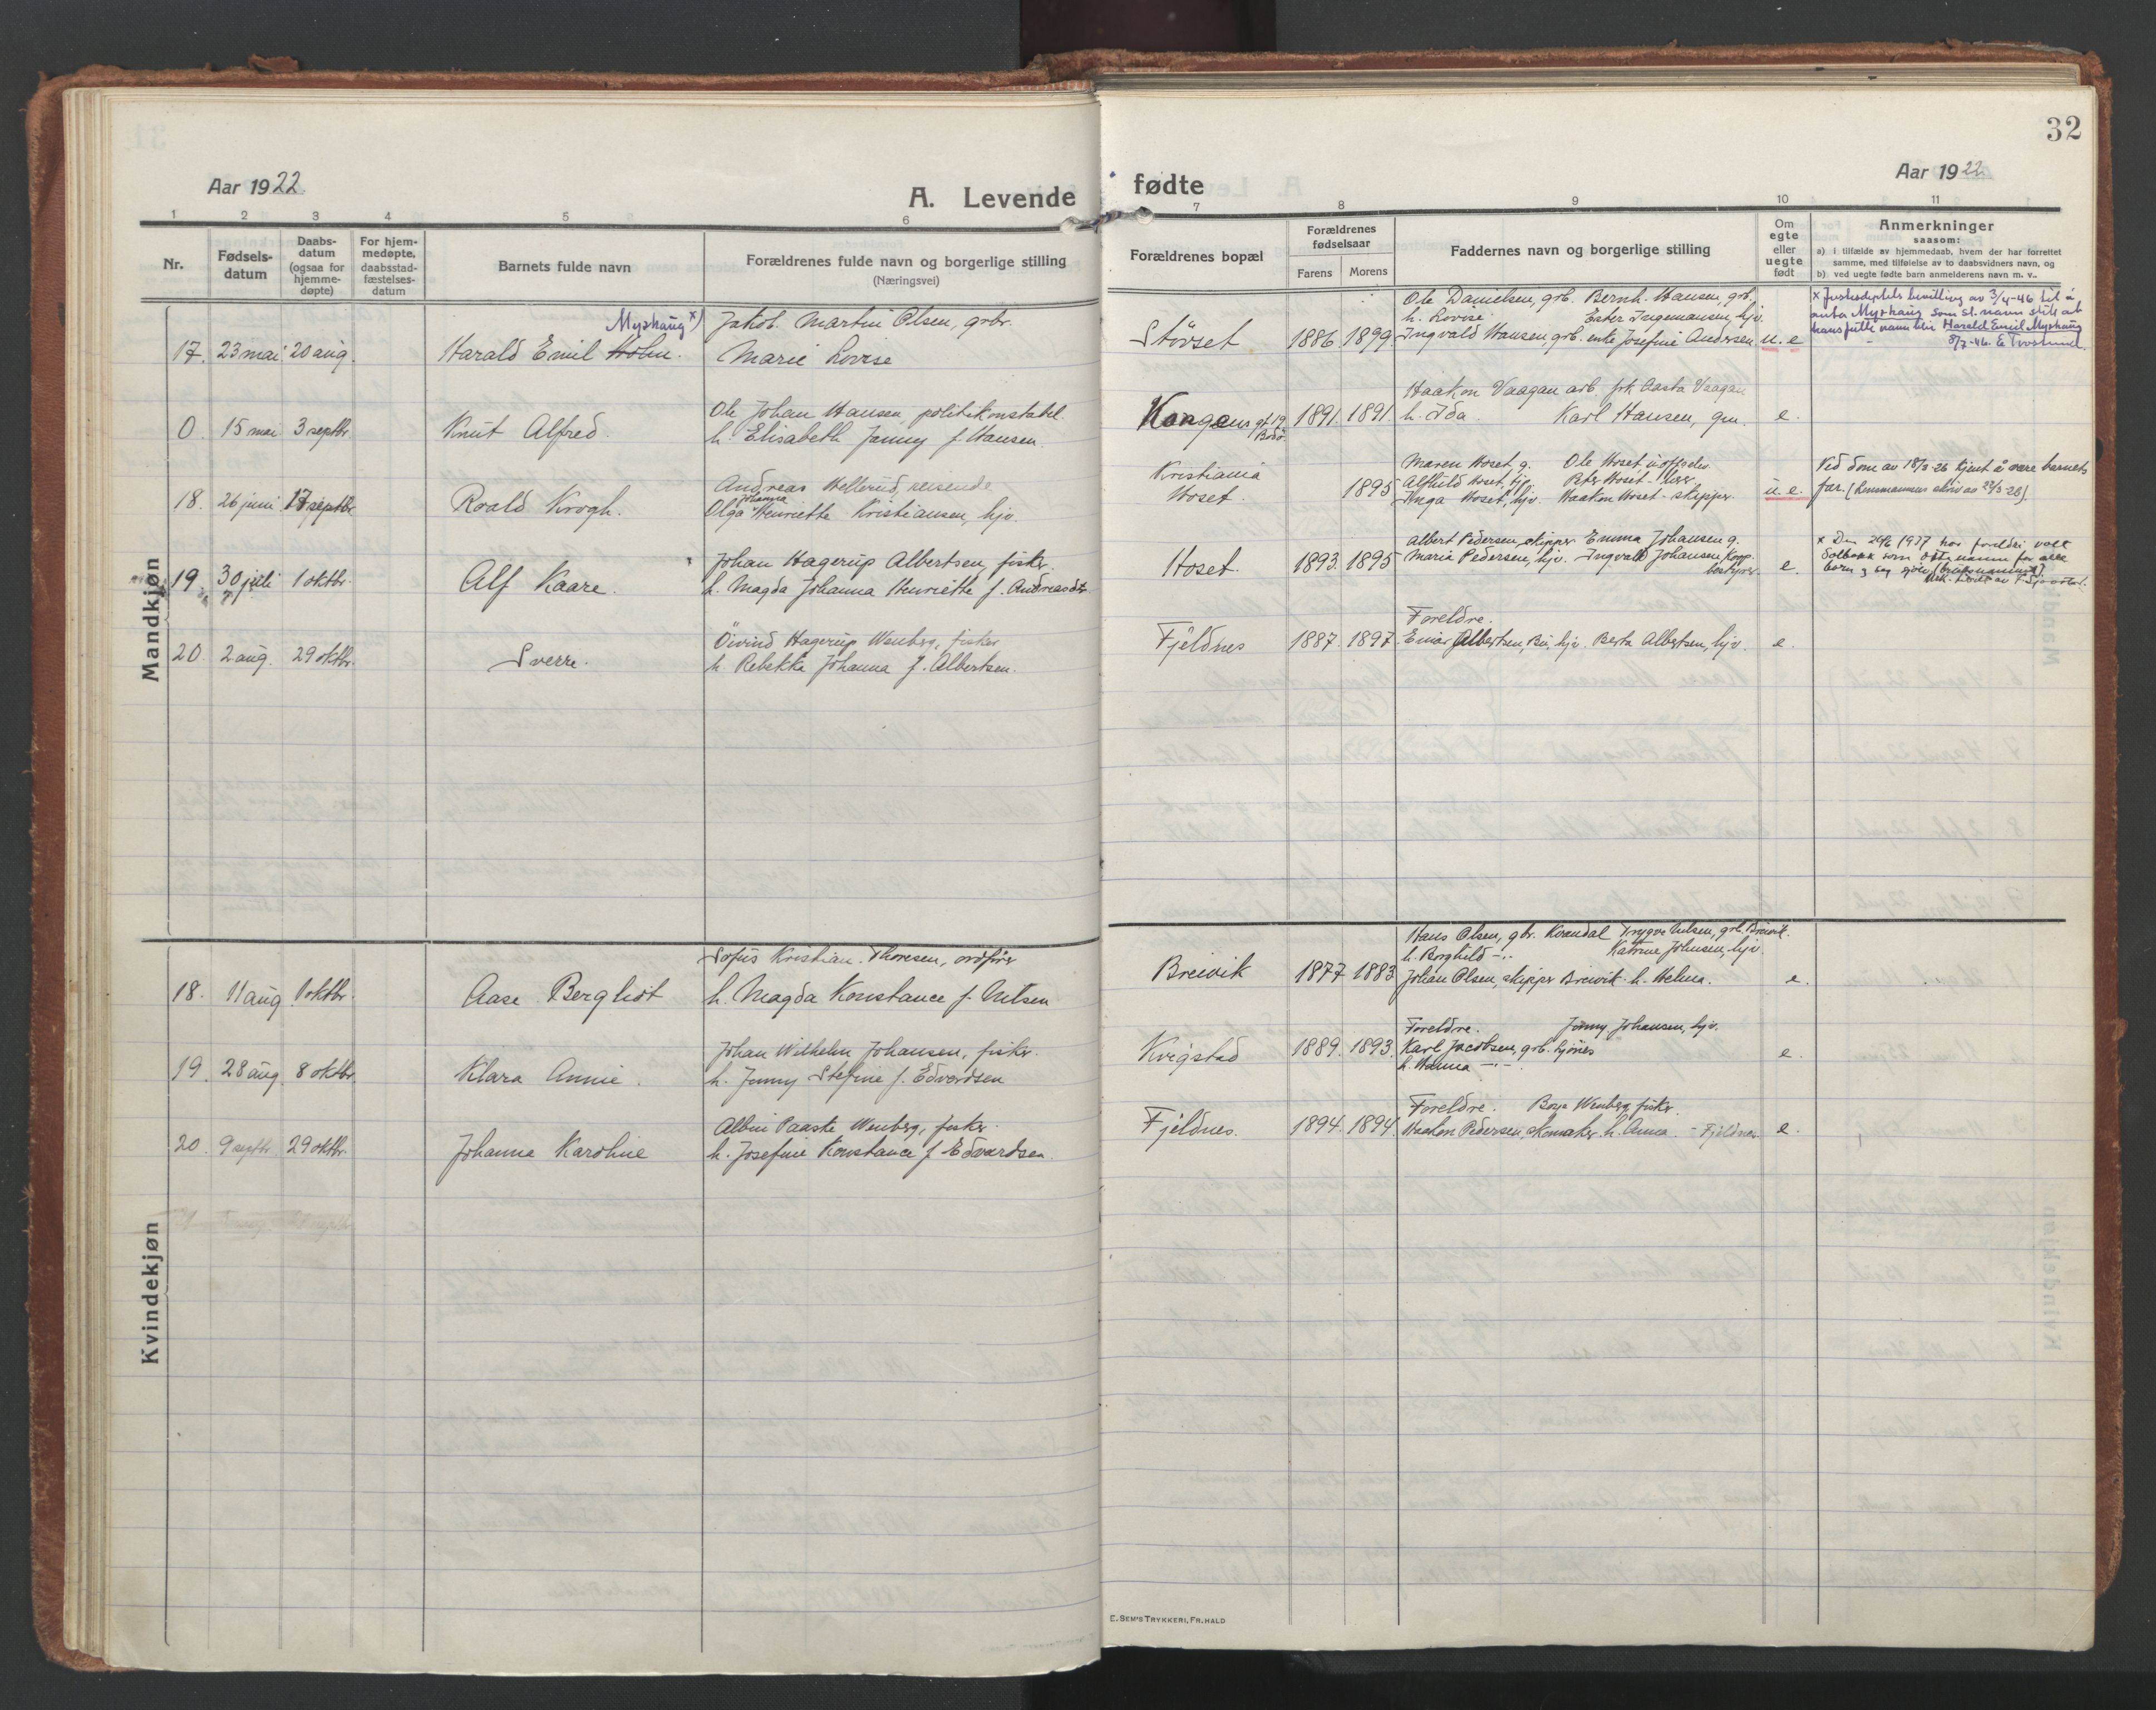 32
Aar 1922
Aar 1922
A. Levende fødte
1 2 3 4 5 6 7 8 9 10 11
Nr.
Fødsels-
datum
Daabs-
datum
(ogsaa for
hjemme-
døpte)
For hjem-
medøpte,
daabsstad-
fæstelses-
datum
Barnets fulde navn
Forældrenes fulde navn og borgerlige stilling
(Næringsvei)
Forældrenes bopæl
Forældrenes
fødselsaar
Farens Morens
Faddernes navn og borgerlige stilling
Om
egte
eller
uegte
født
Anmerkninger
saasom:
a) i tilfælde av hjemmedaab, hvem der har forrettet
samme, med tilføielse av to daabsvidners navn, og
b) ved uegte fødte barn anmelderens navn m. v..
Mandkjøn
17. 23 mai 20 aug.
Myrhaug x)
Harald Emil Holm.
Jakob Martin Olsen, grbr.
Marie Lovise
Støvset 1886 1899
Ole Danielsen, grb. Bernh. Hansen, grb.
h. Lovise. Ester Ingemansen, hjv.
Ingvald Hansen, grb. enke Josefine Andersen.
u. e
x Justisdeptets bevilling av 3/4-46 til å
anta Myrhaug som sl.navn slik at
hans fulle navn blir Harald Emil Myrhaug
8/7-46.
0. 15 mai 3 septbr.
Knut Alfred.
Ole Johan Hansen politikonstabel
h. Elisabeth Jenny f. Hansen
Kongens gt 19
Bodø
1891. 1891.
Haakon Vaagan arb. frk Aasta Vaagan
h. Ida. Karl Hansen, gm.
e.
18. 26 juni 17 septbr
Roald Krogh.
Andreas Hellerud, reisende
Johanna
Olga Henriette Kristiansen, hjv.
Kristiania
Hoset.
1895
Maren Hoset, g. Ole Hoset
Alfhild Hoset, Peter Hoset
Inga Hoset, hjv. Haakon Hoset - skipper.
u. e.
Ved dom av 18/3-26 kjent å være barnets
far. (Lensmannens skriv av 22/3-28)
19. 30 juli 1 oktbr.
Alf Kaare.
Johan Hagerup Albertsen, fisker.
h. Magda Johanna Henriette f. Andreasdtr.
Hoset 1893 1895
Albert Pedersen, skipper Emma Johansen g.
Maria Pedersen, hjv. Ingvald Johansen,
bestyrer.
e.
x Den 29/6 1937 har foreldri valt
Solbakk som ættenamn for alle
born og seg sjølv (bruksnamnet)
20. 2 aug. 29 oktbr.
Sverre.
Öivind Hagerup Wenberg, fisker
h. Rebekka Johanna f. Albertsen.
Fjeldnes 1887. 1897.
Foreldre.
Einar Albertsen, hjv. Berta Albertsen, hjv.
e.
Kvindekjøn
18. 11 aug. 1 oktbr.
Aase Bergliot
Sofus Kristian Thoresen, ordfører
h. Magda Konstance f. Nilsen
Breivik 1877 1883
Hans Olsen, gbr. Kvandal Trygve Nilsen, grb. Breivik.
h. Borghild -"- Katrine Johnsen, hjv.
Johan Olsen, skipper Breivik h. Helma.
e.
19. 28 aug. 8 oktbr.
Klara Annie.
Johan Wilhelm Johansen, fisker.
h. Jenny Stefine f. Edvardsen
Kvigstad 1889. 1893.
Foreldre. Jenny Johansen, hjv.
Karl Jacobsen, grb.
h. Hanna -"-
e.
20. 9 septbr 29 oktbr.
Johanna Karoline
Albin Paaske Wenberg, fisker.
h. Josefine Konstance f. Edvardsen.
Fjeldnes. 1894. 1894
Foreldre. Borge Wenberg, fisker.
Haakon Pedersen, skomaker h. Anna. - Fjeldnes
e.
E. SEM'S TRYKKERI, FR.HALD